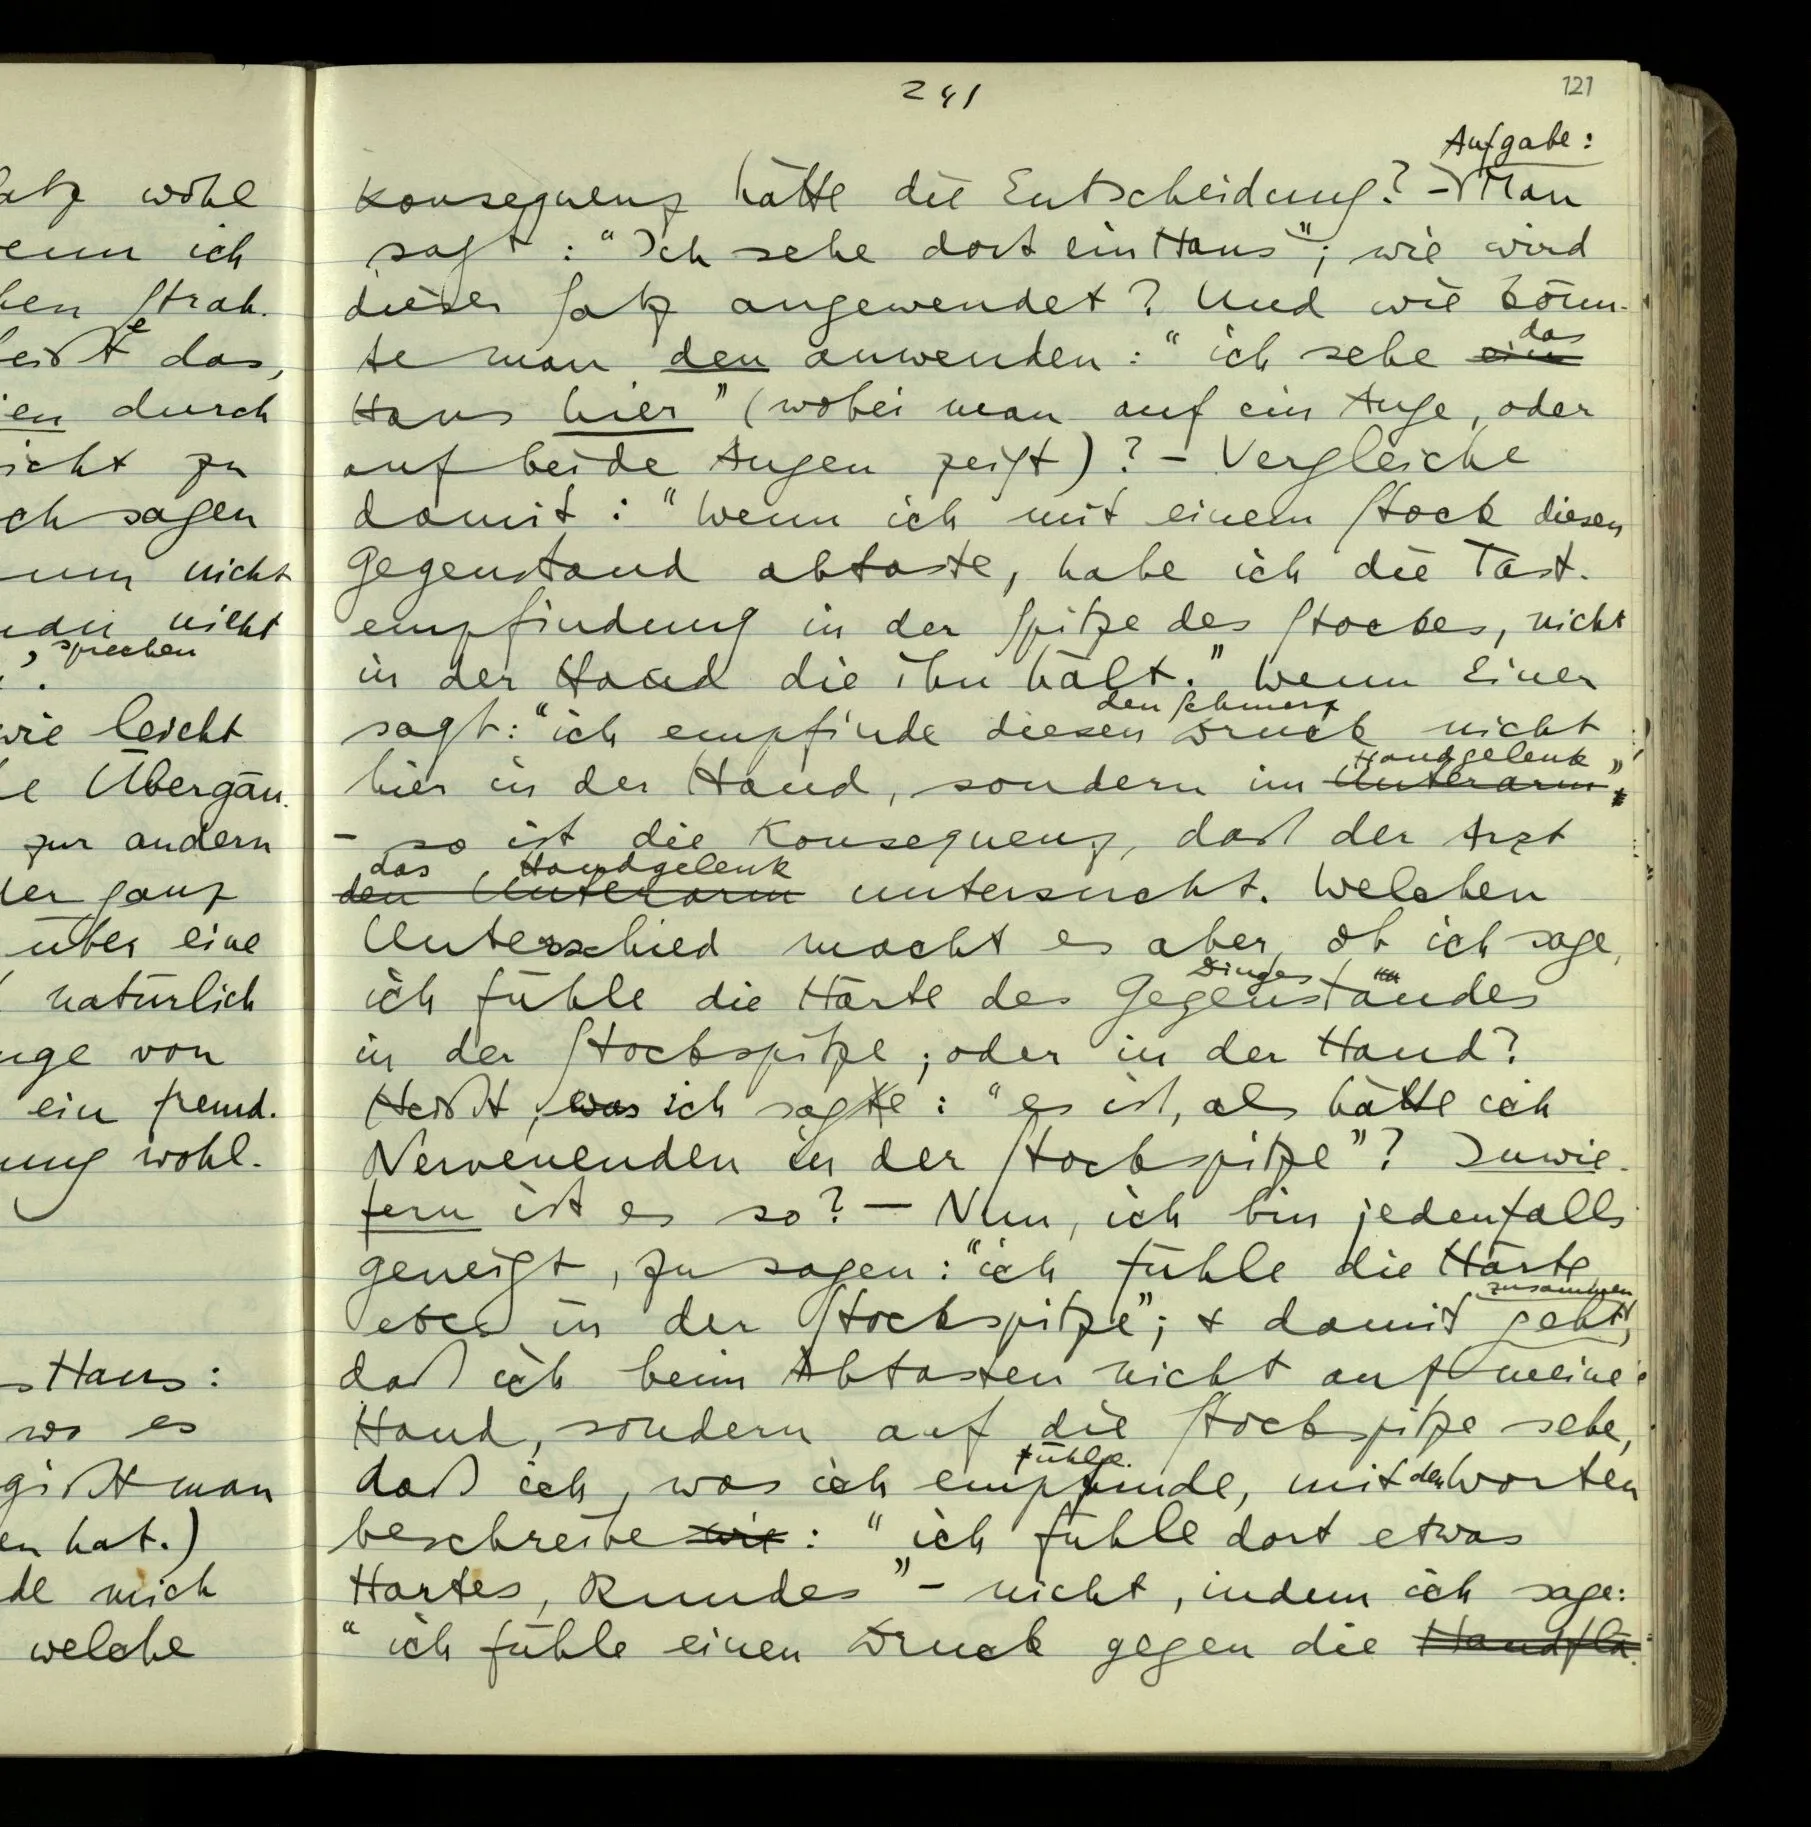 241
121
atz wohl
wenn ich
hen Strah-
heißt das,
e
ien durch
nicht zu
ch sagen
nicht
nicht
, sprechen
wie leicht
le Übergän-
zur andern
der ganz
über eine
natürlich
nge von
ein fremd-
ung wohl-
s Haus:
wo es
gißt man
en hat.)
de mich
welche
Aufgabe:
Konsequenz hätte die Entscheidung? – Man
sagt: "Ich sehe dort ein Haus"; wie wird
dieser Satz angewendet? Und wie könn-
das
te man den anwenden: "ich sehe ein
Haus hier" (wobei man auf ein Auge, oder
auf beide Augen zeigt)? – Vergleiche
damit: "Wenn ich mit einem Stock diesen
Gegenstand abtaste, habe ich die Tast-
empfindung in der Spitze des Stockes, nicht
in der Hand die ihn hält." Wenn Einer
den Schmerz
sagt: "ich empfinde diesen Druck nicht
Handgelenk
hier in der Hand, sondern im Unterarm",
– so ist die Konsequenz, daß der Arzt
das Handgelenk
den Unterarm untersucht. Welchen
Unterschied macht es aber, ob ich sage,
Dinges
ich fühle die Härte des Gegenstandes
in der Stockspitze, oder in der Hand?
Heißt, was ich sage: "es ist, als hätte ich
Nervenenden in der Stockspitze"? Inwie-
fern ist es so? – Nun, ich bin jedenfalls
geneigt, zu sagen: "ich fühle die Härte
zusammen
etc. in der Stockspitze"; & damit geht,
daß ich beim Abtasten nicht auf meine
Hand, sondern auf die Stockspitze sehe,
fühle
daß ich, was ich empfinde, mit den Worten
beschreibe wie: "ich fühle dort etwas
Hartes, Rundes" – nicht, indem ich sage:
"ich fühle einen Druck gegen die Handflä-